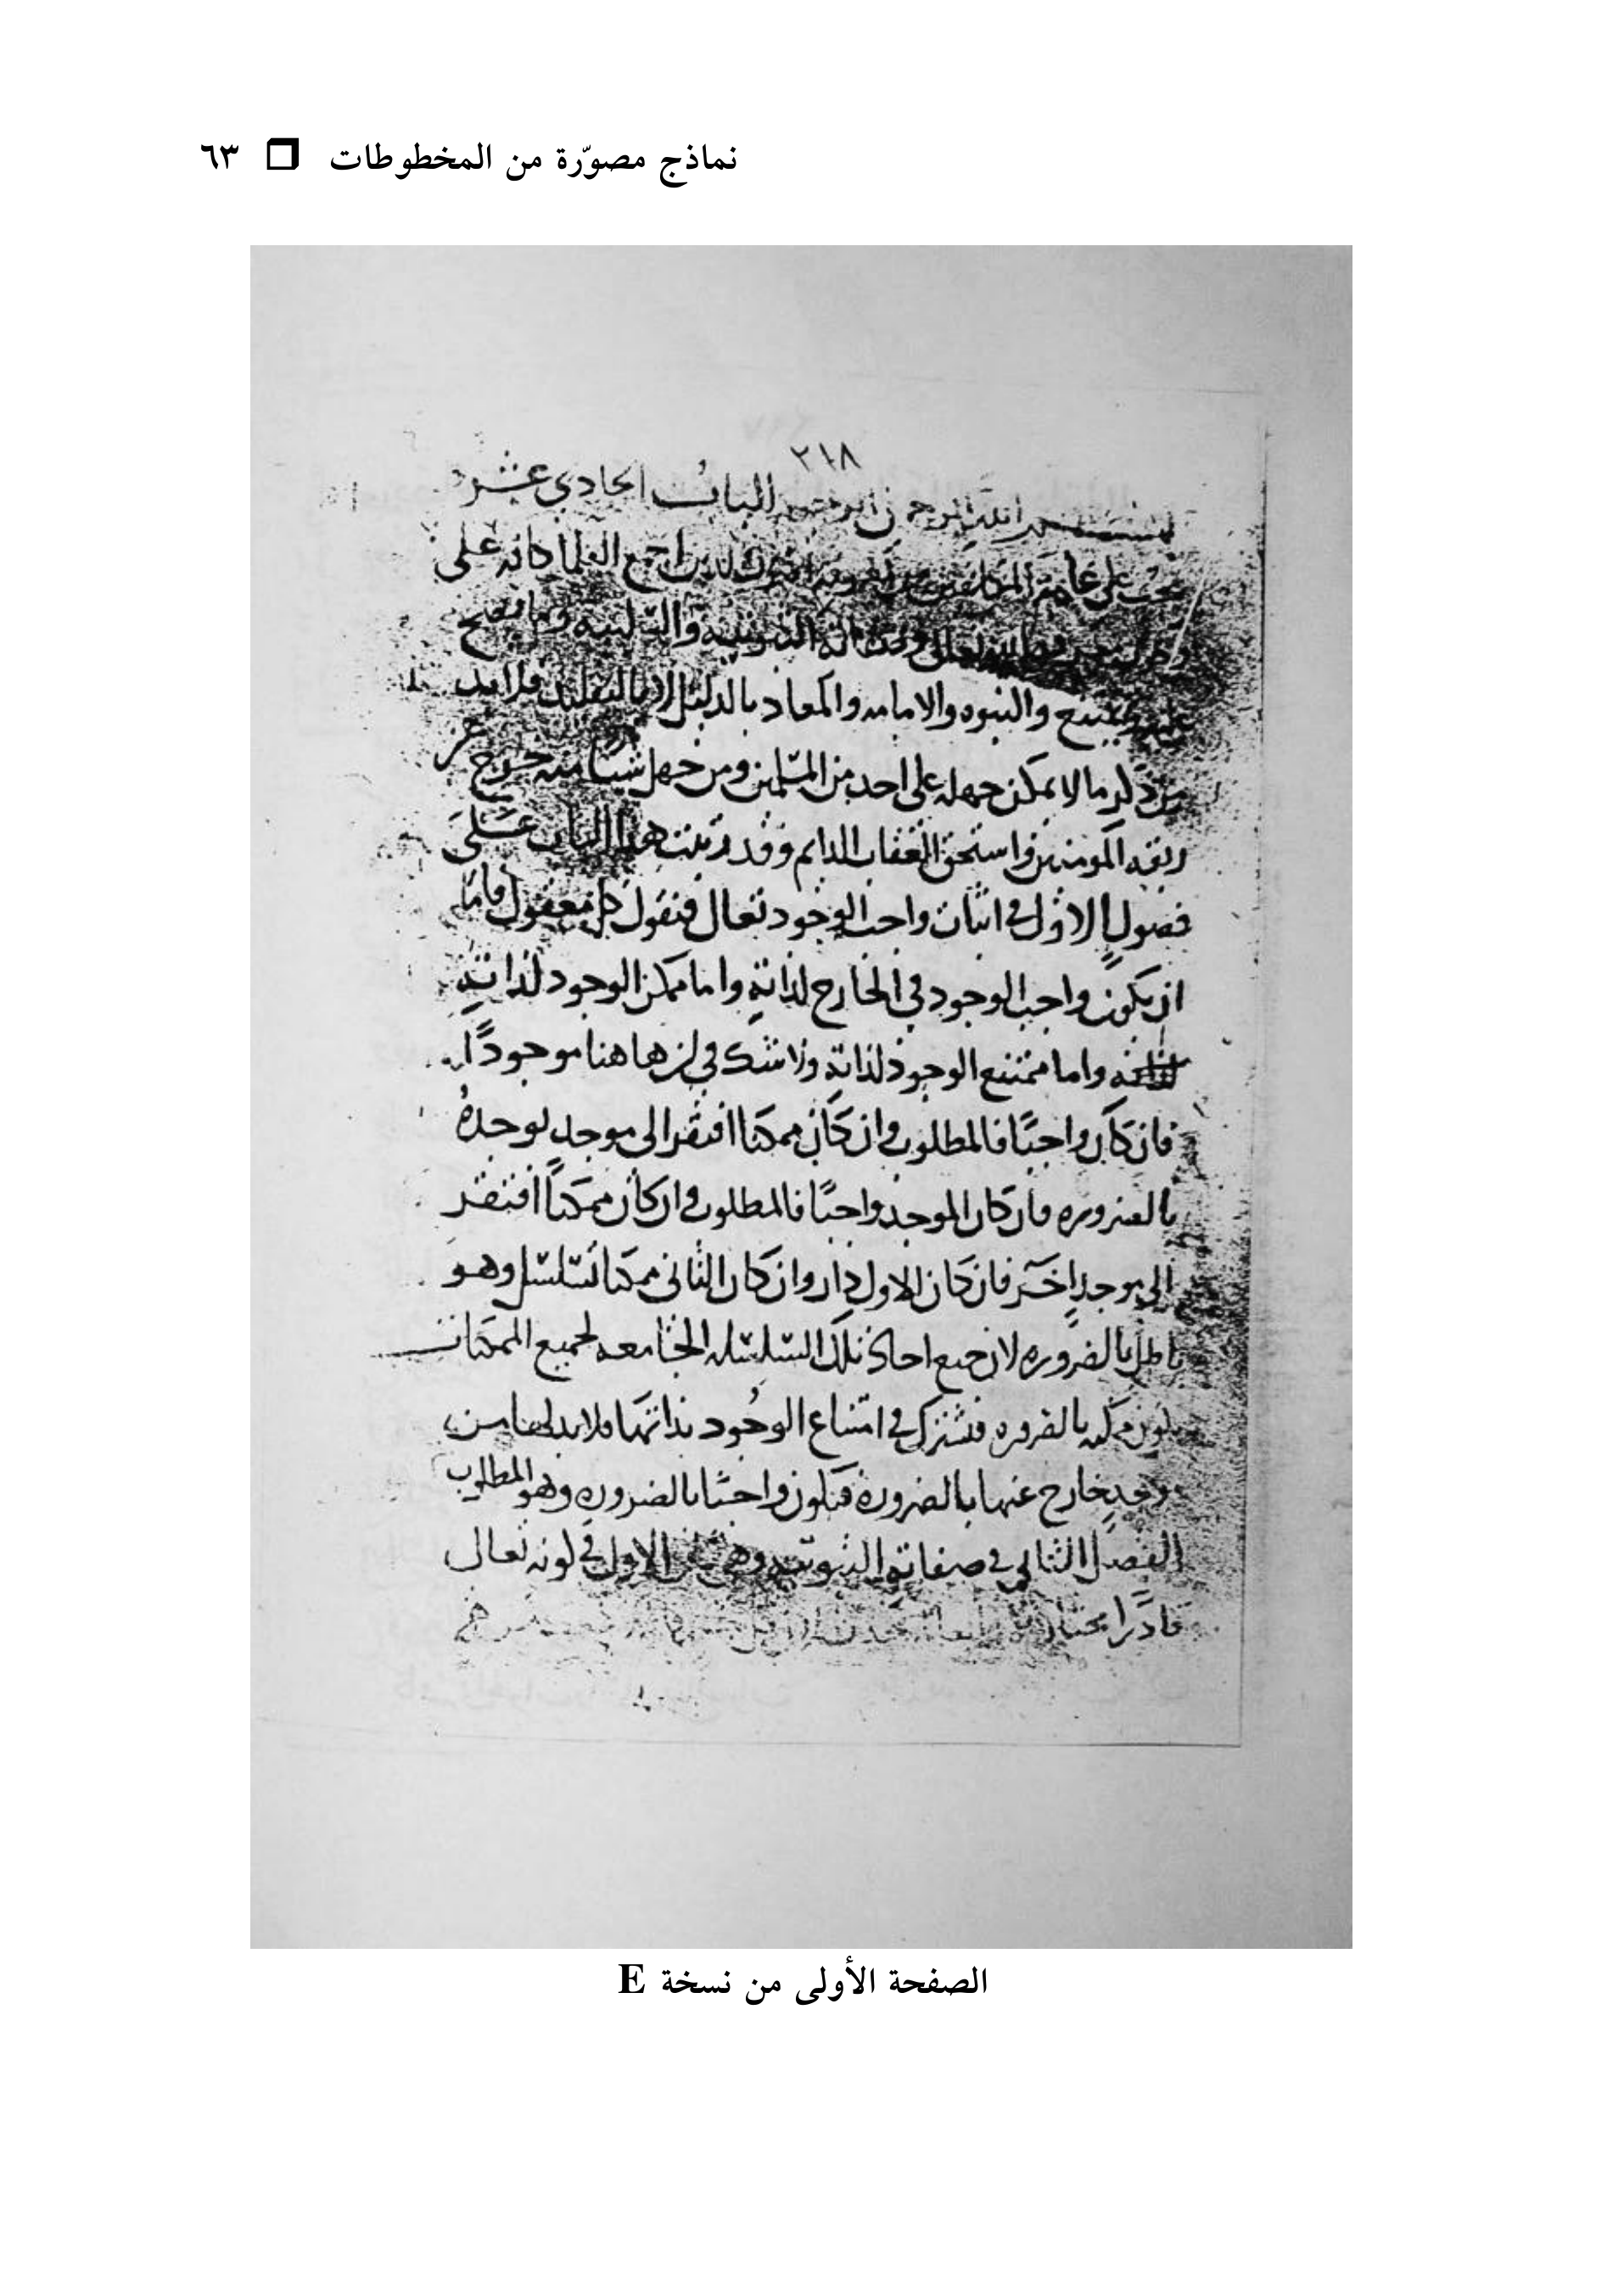 نماذج مصوّرة من المخطوطات ❒ ٦٣
٢١٨
بسم الله الرحمن الرحيم الباب الحادي عشر
يجب على عامة المكلفين من معرفة اصول الدين اجمع العلما كافه على
وجوب معرفة الله تعالى وصفاته الثبوتيه والسلبيه وما يصح
عليه ويمتنع والنبوه والامامه والمعاد بالدليل لا بالتقليد فلا بد
من ذكر ما لا يمكن جهله على احد من المسلمين ومن جهل شيئا منه خرج عن
ربقه المومنين واستحق العقاب الدايم وقد رتبت هذا الباب على
فصول الاول في اثبات واجب الوجود تعالى فنقول كل معقول فاما
ان يكون واجب الوجود في الخارج لذاته واما ممكن الوجود لذاته
واما ممتنع الوجود لذاته ولا شك في ان هاهنا موجودًا
فان كان واجبًا فالمطلوب وان كان ممكنا افتقر الى موجد يوجدهُ
بالضروره فان كان الموجد واجبًا فالمطلوب وان كان ممكنًا افتقر
الى موجدٍ اخر فان كان الاول دار وان كان الثاني ممكنا تسلسل وهو
باطل بالضروره لان جميع احاد تلك السلسله الجامعه لجميع الممكنات
يكون ممكنه بالضروره فتشترك في امتناع الوجُود بذاتها فلا بد لها من
موجدٍ خارج عنها بالضرورة فيكون واجبًا بالضروره وهو المطلوب
الفصل الثاني في صفاته الثبوتيه وهي ثمان الاول في كونه تعالى
قادرًا مختارا
الصفحة الأولى من نسخة E